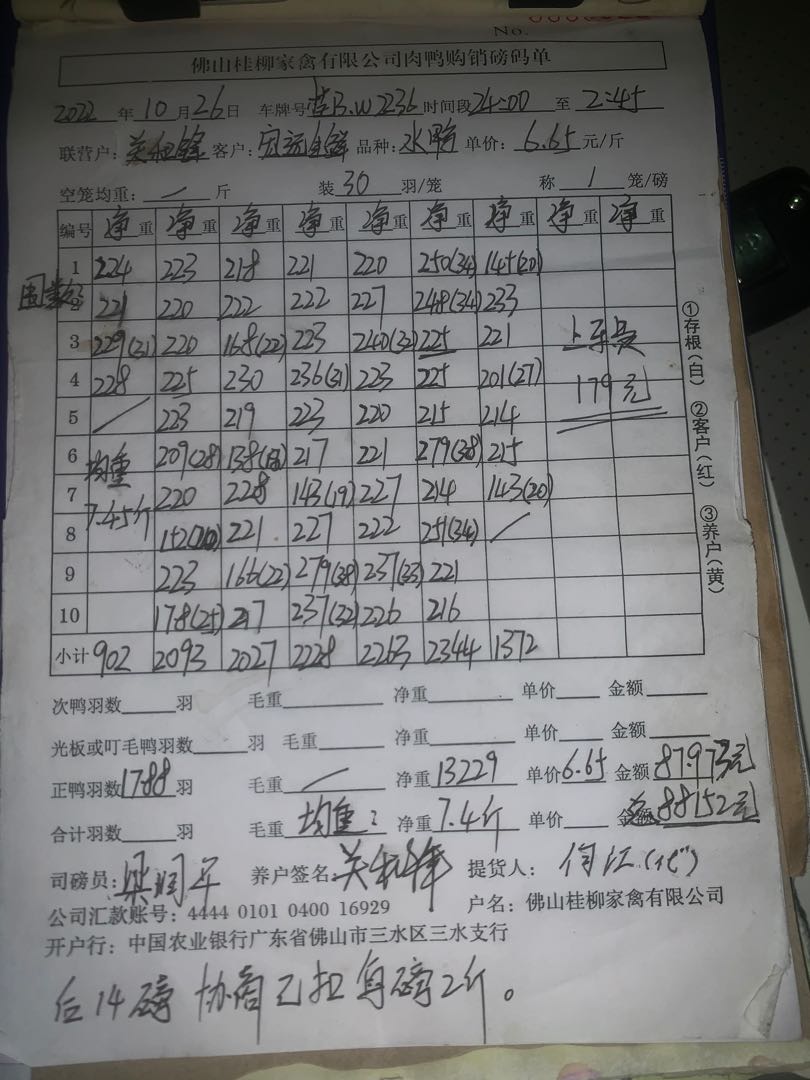 No.
佛山桂柳家禽有限公司肉鸭购销磅码单
2022 年 10 月 26 日 车牌号 桂B.W2236 时间段 24:00 至 2:45
联营户: 客户: 品种: 水鸭 单价: 6.65 元/斤
空笼均重: 一 斤 装 30 羽/笼 称 1 笼/磅
编号 净重 净重 净重 净重 净重 净重 净重 净重 净重
1 224 223 218 221 220 250(34) 145(20)
2 221 220 222 222 227 248(34) 233
3 229(31) 220 168(22) 223 240(32) 225 221 上车费
4 228 225 230 236(31) 223 225 201(27) 179元
5 223 219 223 220 215 214
6 均重 209(28) 138(18) 217 221 279(38) 215
7 7.45斤 220 228 143(19) 227 214 143(20)
8 152(20) 221 227 222 251(34)
9 223 166(22) 279(38) 237(33) 221
10 178(25) 217 237(32) 226 216
小计 902 2093 2027 2228 2263 2344 1372
①存根(白) ②客户(红) ③养户(黄)
次鸭羽数 羽 毛重 净重 单价 金额
光板或叮毛鸭羽数 羽 毛重 净重 单价 金额
正鸭羽数 1788 羽 毛重 净重 13229 单价 6.65 金额 87973元
合计羽数 羽 毛重 均重: 净重 7.4斤 单价 金额 88152元
司磅员: 养户签名: 提货人:
公司汇款账号: 4444 0101 0400 16929 户名: 佛山桂柳家禽有限公司
开户行: 中国农业银行广东省佛山市三水区三水支行
后14磅 协商已扣每磅2斤。